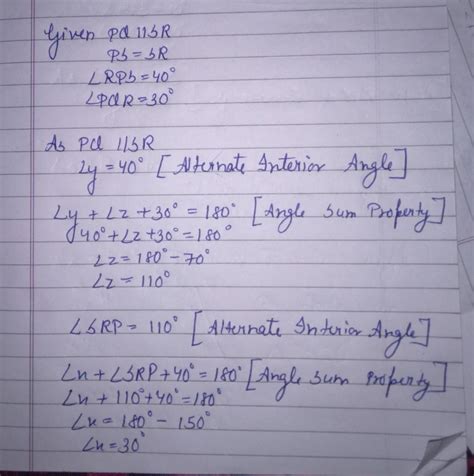 Given PQ || SR
PS = SR
∠RPS = 40°
∠PQR = 30°
As PQ || SR
∠y = 40° [Alternate Interior Angle]
∠y + ∠z + 30° = 180° [Angle Sum Property]
40° + ∠z + 30° = 180°
∠z = 180° - 70°
∠z = 110°
∠SRP = 110° [Alternate Interior Angle]
∠x + ∠SRP + 40° = 180° [Angle Sum Property]
∠x + 110° + 40° = 180°
∠x = 180° - 150°
∠x = 30°